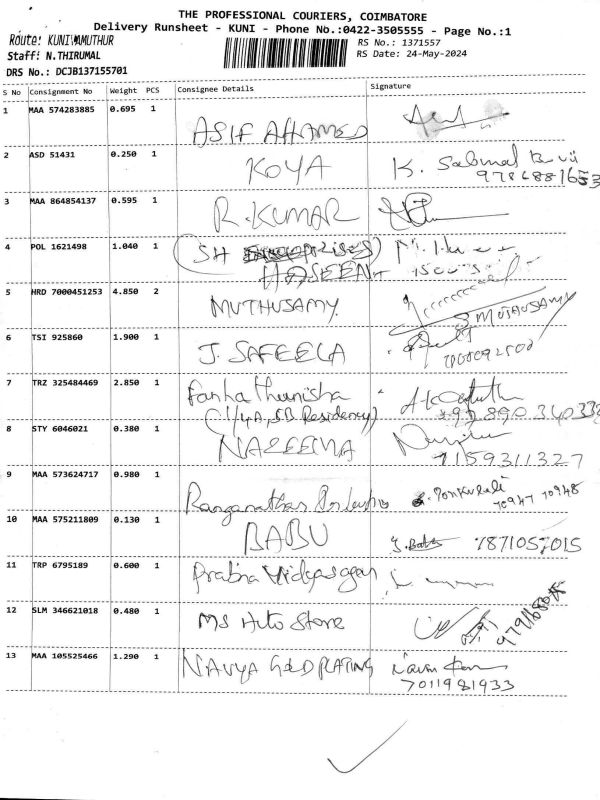 THE PROFESSIONAL COURIERS, COIMBATORE
Delivery Runsheet - KUNI - Phone No.:0422-3505555 - Page No.:1
Route: KUNIYAMUTHUR
RS No.: 1371557
Staff: N.THIRUMAL
RS Date: 24-May-2024
DRS No.: DCJB137155701
S No Consignment No Weight PCS Consignee Details Signature
1 MAA 574283885 0.695 1
ASIF AHAMED
2 ASD 51431 0.250 1
KOYA K.
9786881653
3 MAA 864854137 0.595 1
R.KUMAR
4 POL 1621498 1.040 1 (SH
HASEENA
5 HRD 7000451253 4.850 2
MUTHUSAMY. S MUTHUSAMY
6 TSI 925860 1.900 1
J. SAFEELA
7 TRZ 325484469 2.850 1 Farha thunisha
(1/4A, SB Residency)
8 STY 6046021 0.380 1 NAZEEMA
7159311327
9 MAA 573624717 0.980 1
Ranganathan
70947 70948
10 MAA 575211809 0.130 1 BABU
7871057015
11 TRP 6795189 0.600 1 Prabha Vidyasagar
12 SLM 346621018 0.480 1
MS Auto Store
13 MAA 105525466 1.290 1 NAVYA GOLD PLATING
7011981933